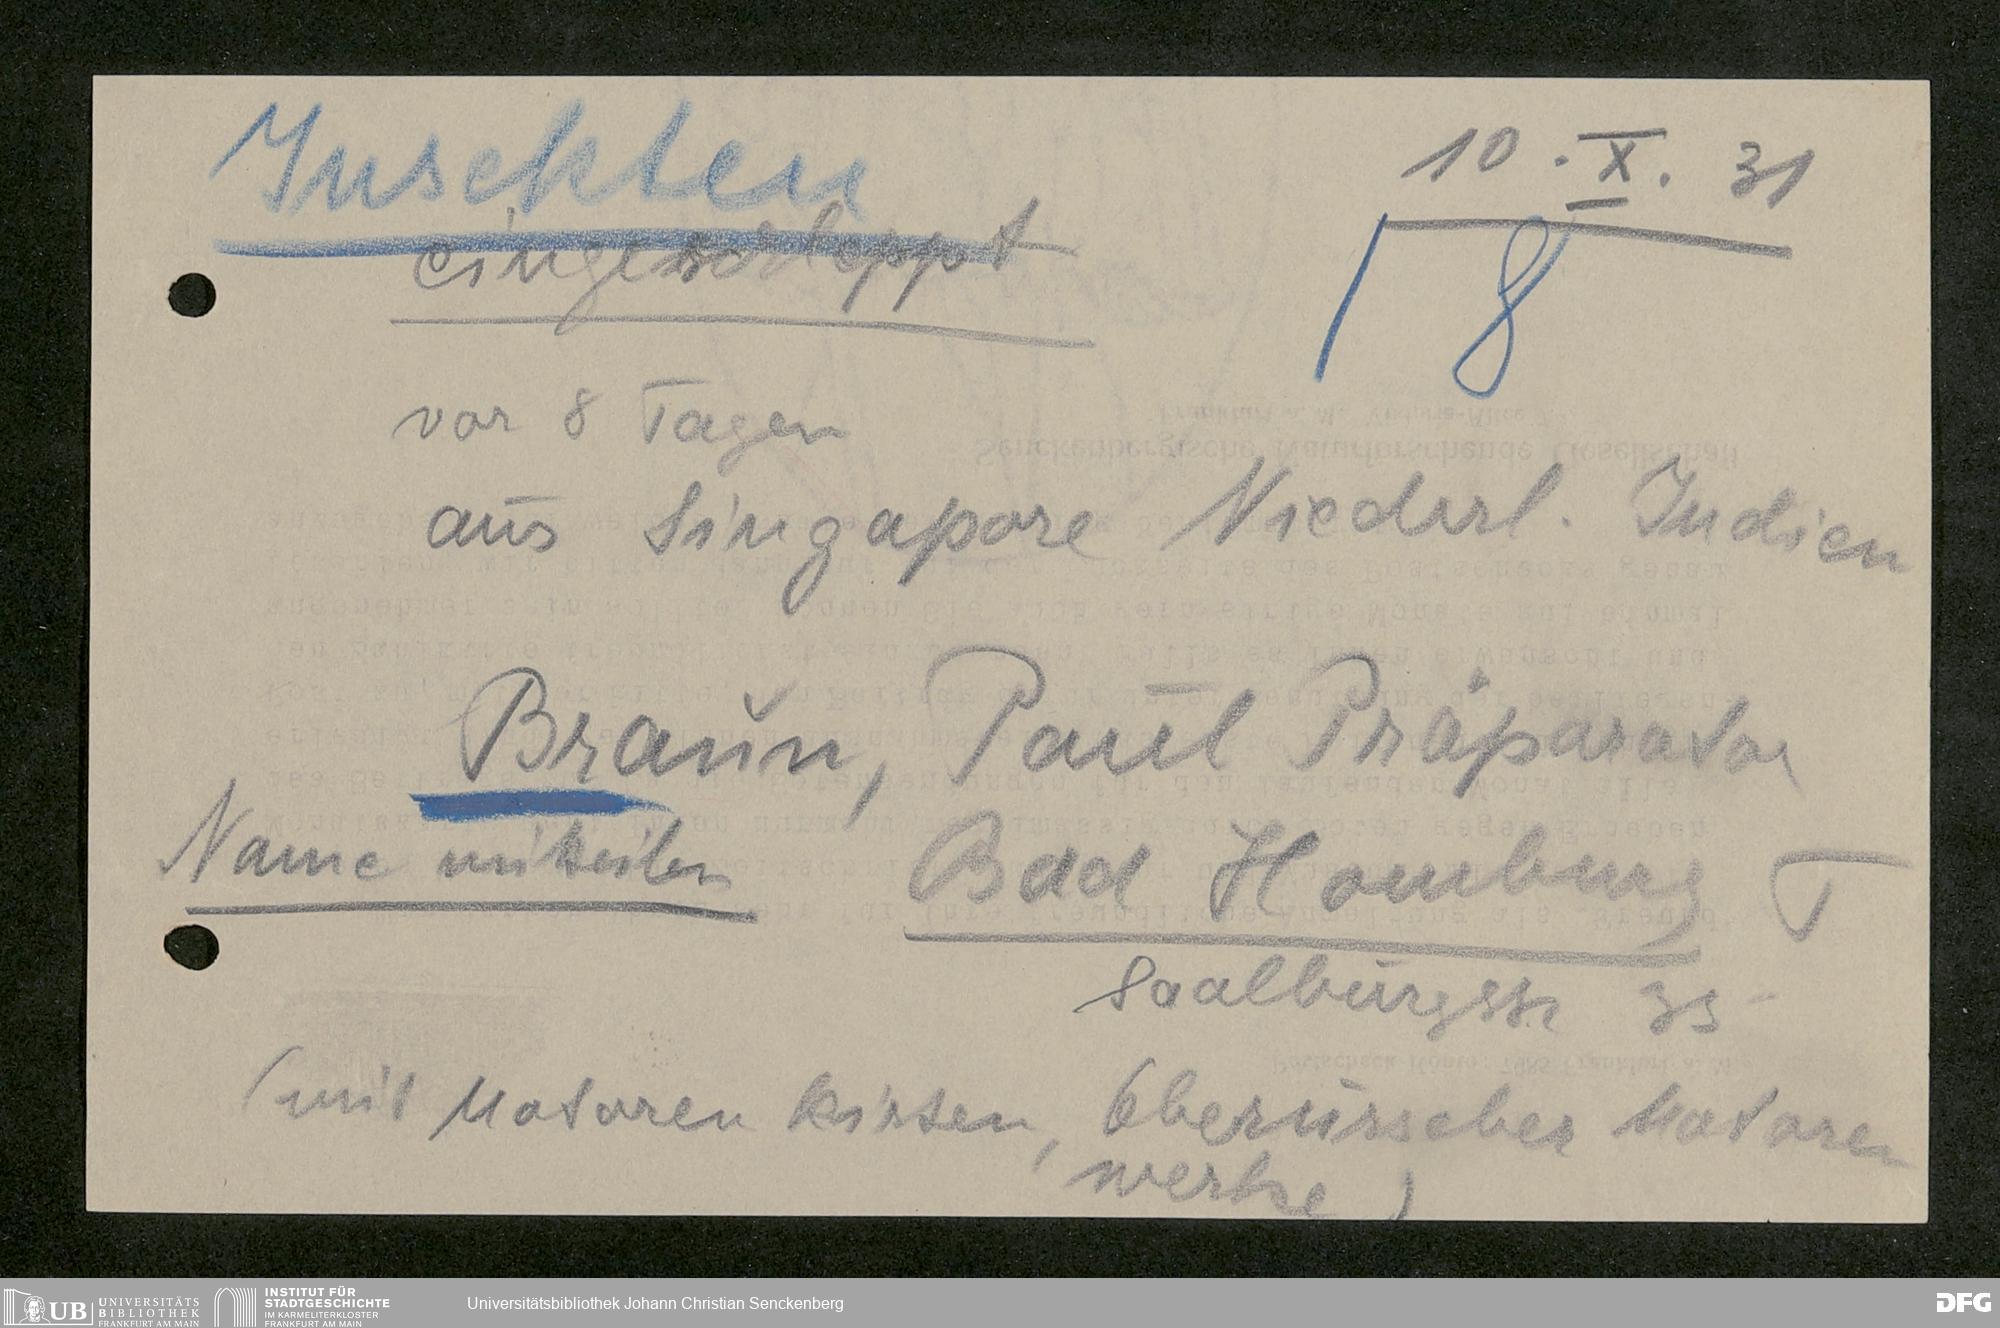 Insekten
10. X. 31
eingeschleppt
8
vor 8 Tagen
aus Singapore Niederl. Indien
Braun, Paul Präparator
Name mitteilen
Bad Homburg T
Saalburgstr 35
(mit Motoren kisten, Oberursseler Motoren
werke)
UB UNIVERSITÄTS
BIBLIOTHEK
FRANKFURT AM MAIN
INSTITUT FÜR
STADTGESCHICHTE
IM KARMELITERKLOSTER
FRANKFURT AM MAIN
Universitätsbibliothek Johann Christian Senckenberg
DFG